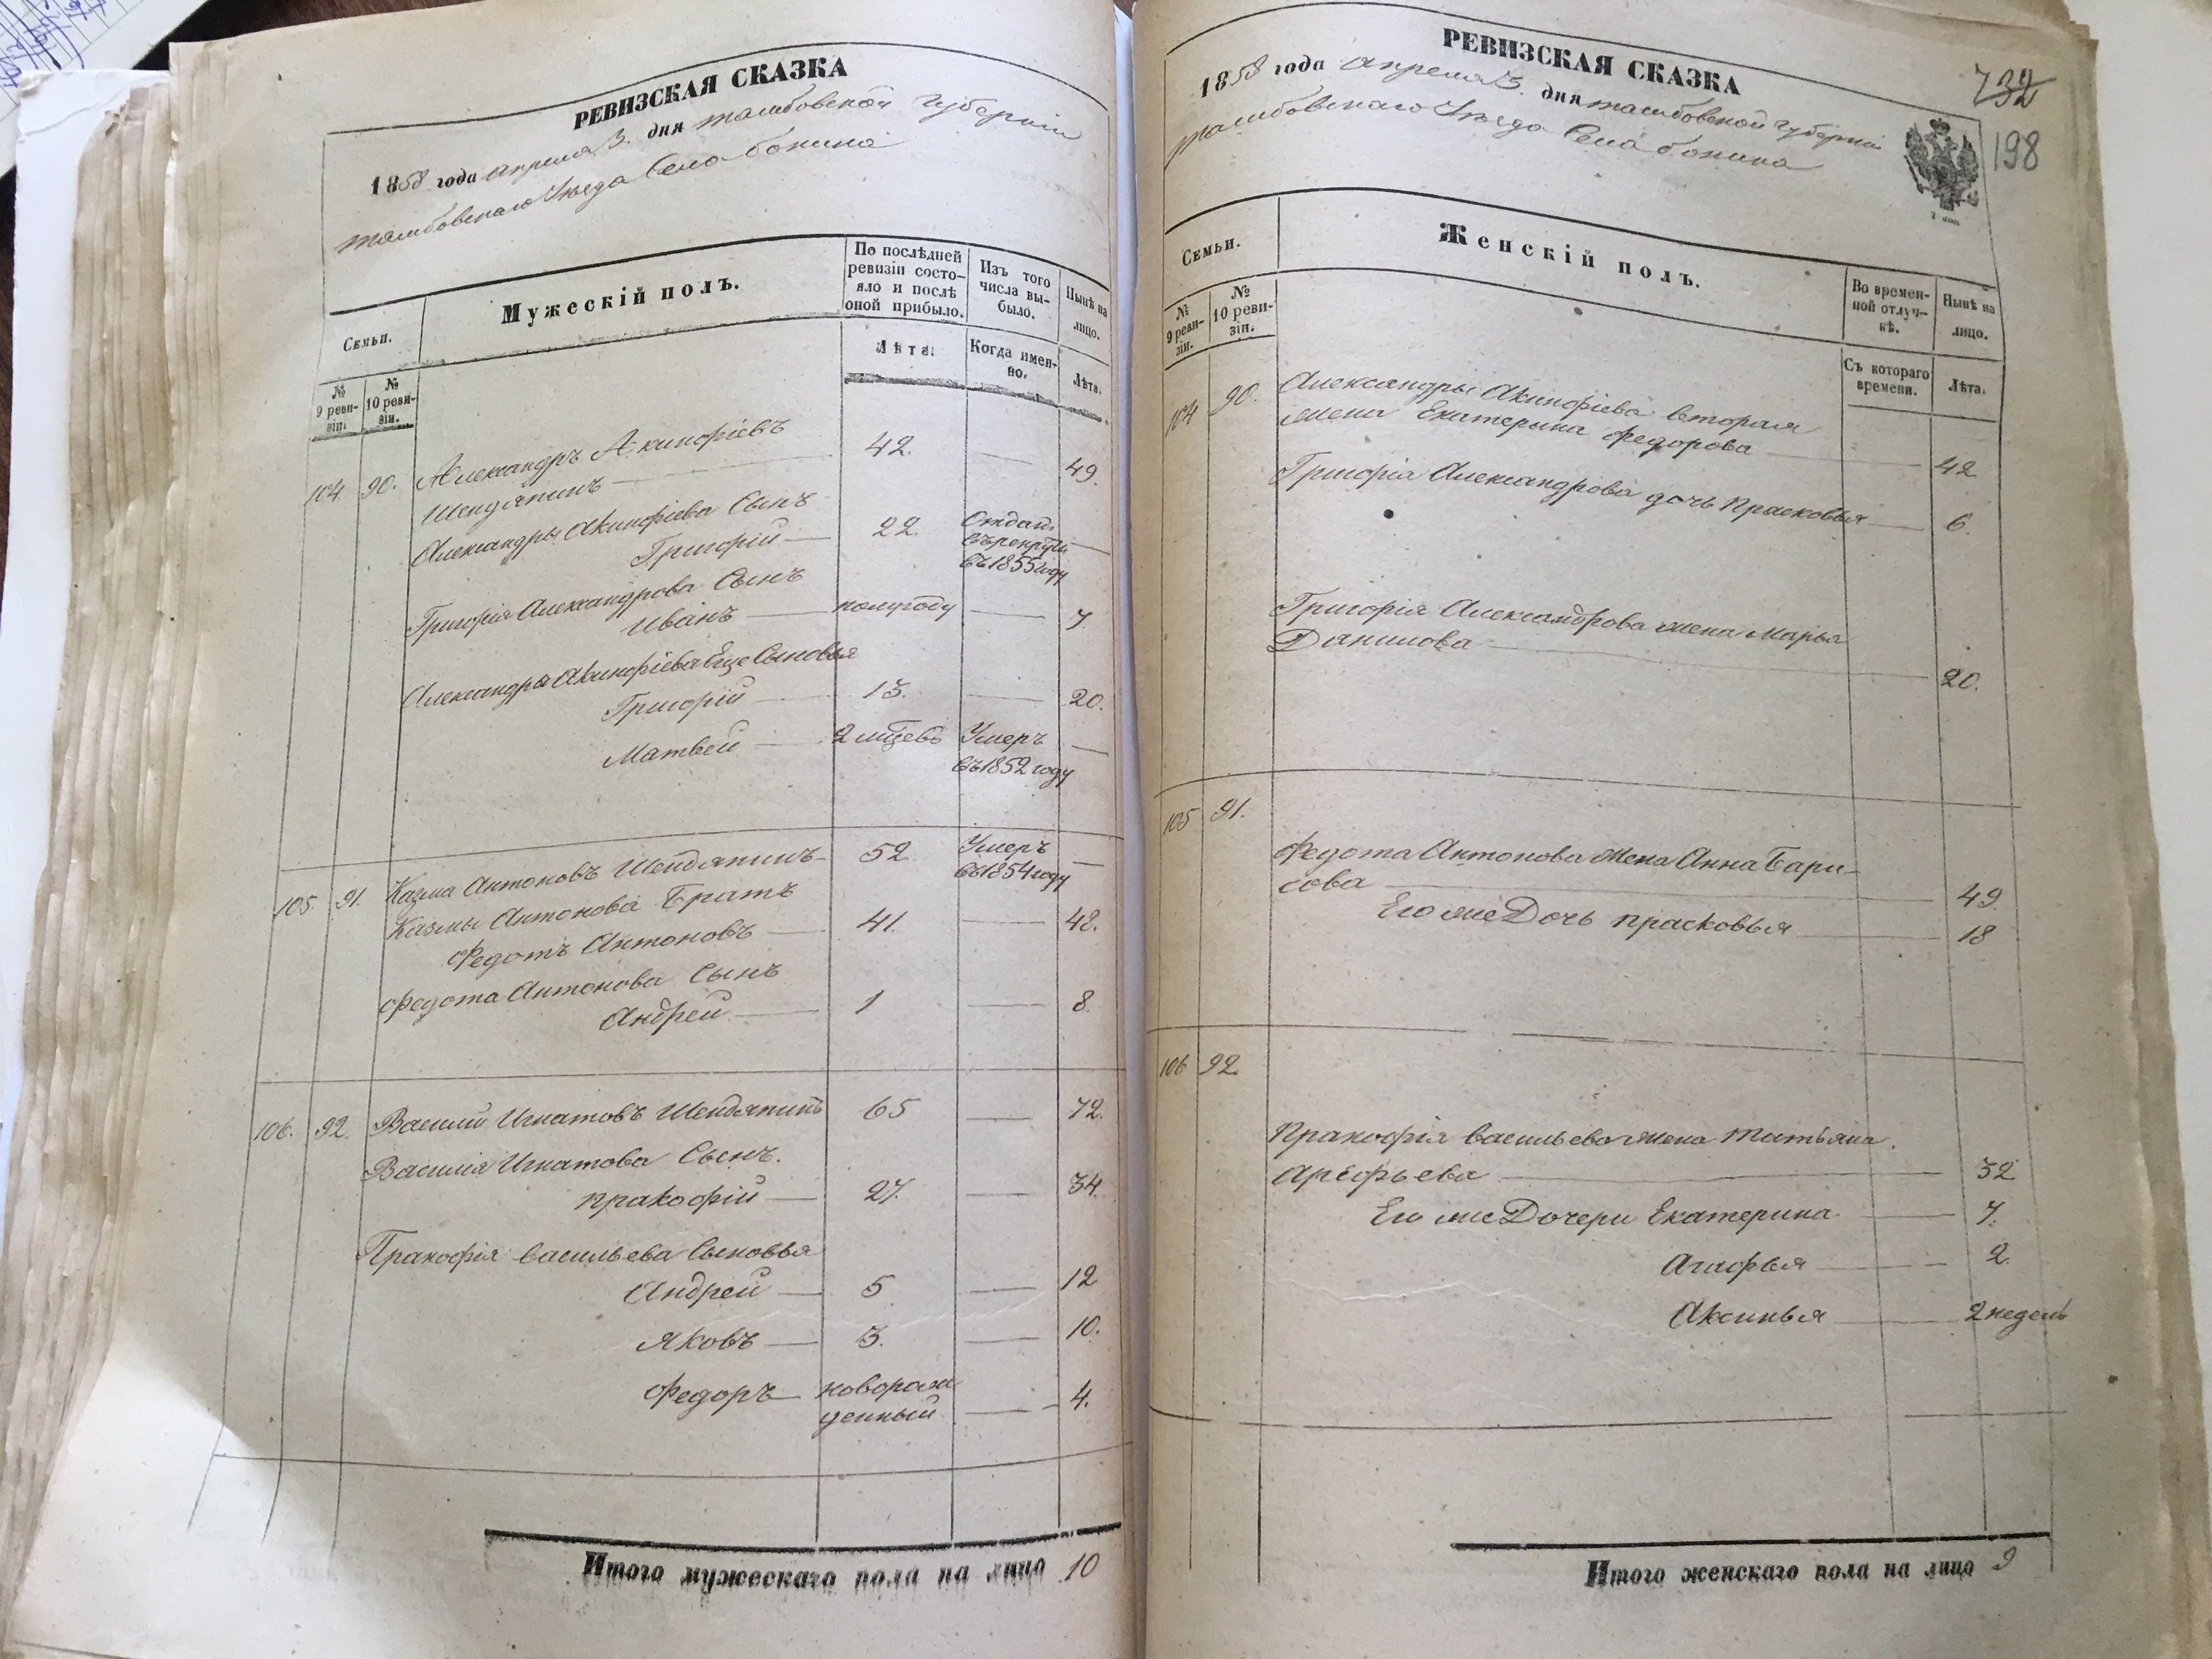 РЕВИЗСКАЯ СКАЗКА
1858 года апреля 3. дня тамбовской губернии
тамбовскаго Уезда Села бокина
Семьи.
Мужескій полъ.
По послѣдней ревизіи состо-
яло и послѣ
оной прибыло.
Изъ того
числа вы-
было.
Нынѣ на
лицо.
№
9 реви-
зіи.
№
10 реви-
зіи.
Лѣта.
Когда имен-
но.
Лѣта.
104 90. Александръ Акинфіевъ
Шендяпинъ 42. 49.
Александры Акинфіева Сынъ
Григорій 22. Отдан
въ рекруты
въ 1855 году
Григорія Александрова Сынъ
Иванъ полугоду 7
Александры Акинфіева Еще Сыновья
Григорій 13. 20.
Матвей 2 мцевъ Умеръ
въ 1852 году
105. 91. Казма Антоновъ Шендяпинъ 52 Умеръ
въ 1854 году
Казмы Антонова Братъ
Федотъ Антоновъ 41. 48.
Федота Антонова Сынъ
Андрей 1 8.
106. 92. Василий Игнатовъ Шендяпинъ 65 72.
Василія Игнатова Сынъ.
пракофій 27. 34.
Пракофія васильева Сыновья
Андрей 5 12
Яковъ 3. 10.
Федоръ новорож
денный 4.
Итого мужескаго пола на лицо 10
РЕВИЗСКАЯ СКАЗКА
732
198
1858 года апреля 3. дня тамбовской губернии
тамбовскаго Уезда Села бокина
Семьи.
Женскій полъ.
Во времен-
ной отлуч-
кѣ.
Нынѣ на
лицо.
№
9 реви-
зіи.
№
10 реви-
зіи.
Съ котораго
времени.
Лѣта.
104 90. Александры Акинфіева вторая
жена Екатерина федорова 42
Григорія Александрова дочь Прасковья 6.
Григорія Александрова жена Марья
Данилова 20.
105 91.
Федота Антонова Жена Анна Бари-
сова 49
Его же Дочь прасковья 18
106 92.
Пракофія васильева жена татьяна
Арефьева 32
Его же Дочери Екатерина 7.
Агафья 2.
Аксинья 2 недель
Итого женскаго пола на лицо 9